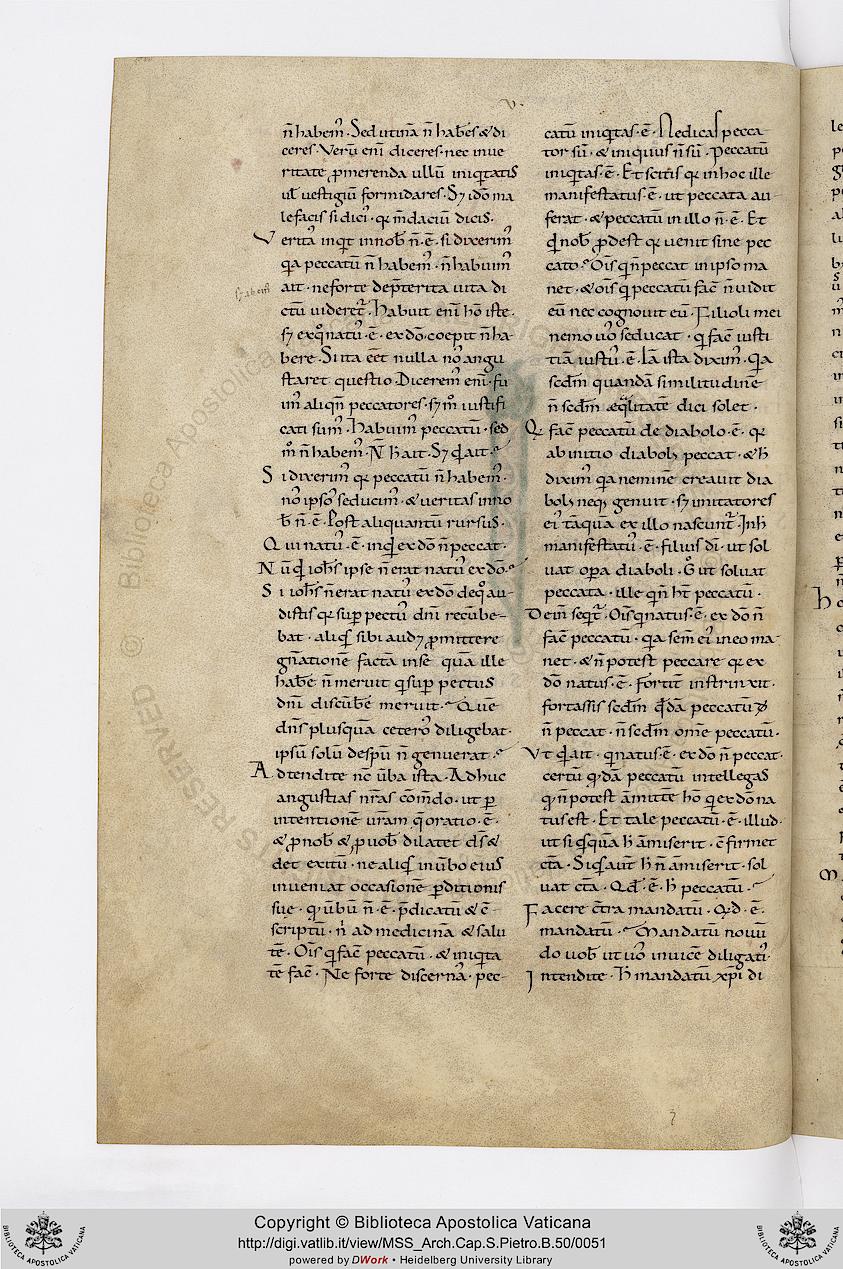 ·v·
n̄ habem᷒ · Sed utinā n̄ habēs & di
ceres · Verū enī diceres · nec in ve
ritate ꝓmerenda ullū iniq̇tatis
ul̄ vestigiū formidares · Sꝫ idō ma
le facis si dicis̓ · qꝛ m̄daciū dicis ·
Veritas̓ inq̇t in nob̄ n̄ · ē · si dixerim᷒
q̇a peccatū n̄ habem᷒ · n̄ habuim᷒
ait · ne forte dep̄terita vita di
sꝫ habem᷒
ctū videret᷑ · Habuit enī hō iste ·
sꝫ ex q̊ natus̓ · ē · ex dō · coepit n̄ ha
bere · Si ita eēt nulla nos̓ angu
staret questio · Dicerem᷒ enī · fu
im᷒ aliqn̄ peccatores · sꝫ m̊ iustifi
cati sum᷒ · Habuim᷒ peccatū · sed
m̊ n̄ habem᷒ · N̄ h̄ ait · Sꝫ qͥd ait ·
Si dixerim᷒ qꝛ peccatū n̄ habem᷒ ·
nos̓ ipsos̓ seducim᷒ · & veritas in no
b̄ n̄ · ē · Post aliquantū rursus ·
Qui natus̓ · ē · inqͥd ex dō n̄ peccat ·
Nū qͥd ioh̄s ipse n̄ erat natus̓ ex dō ·
Si ioh̄s n̄ erat natus̓ ex dō de q̊ au
distis qꝛ suꝑ pectus̓ dn̄i recūbe-
bat · aliqͥs sibi audꝫ ꝓmittere
gn̄ationē factā in se quā ille
habē n̄ meruit q̇ suꝑ pectus
dn̄i discūbē meruit · Quē
dn̄s plusquā ceteros̓ diligebat ·
ipsū solū de spū n̄ genuerat ·
Adtendite nc̄ ūba ista · Adhuc
angustias nr̄as cōm̄do · ut ꝑ
intentionē vr̄am q̇ oratio · ē ·
& ꝓ nob̄ & ꝓ vob̄ dilatet ds̄ &
det exitū · ne aliqͥs in ūbo eius
inveniat occasionē ꝑditionis
sue · qd̓ ūbū n̄ · ē · p̄dicatū & c̄-
scriptū · nͥ ad medicinā & salu
tē · Oīs q̇ facͭ peccatū · & iniq̇ta
tē facͭ · Ne forte discernas̓ · pec-
catū iniq̇tas · ē · Ne dicas pecca
tor sū · & iniquus n̄ sū · Peccatū
iniq̇tas · ē · Et scitis qꝛ in hoc ille
manifestatus · ē · ut peccata au-
ferat · & peccatū in illo n̄ · ē · Et
qͥd nob̄ ꝓdest qꝛ venit sine pec
cato · Oīs q̇ n̄ peccat in ipso ma
net · & oīs q̇ peccatū facͭ n̄ vidit
eū nec cognovit eū · Filioli mei
nemo vos̓ seducat · q̇ facͭ iusti
tiā iustus̓ · ē · Iā ista dixim᷒ · Q̇a
scdm̄ quandā similitudinē
n̄ scdm̄ eq̇litatē dici solet ·
Q̇ facͭ peccatū de diabolo · ē · qꝛ
ab initio diabols̓ peccat · & h̄
dixim᷒ q̇a neminē creavit dia
bols̓ neqꝫ genuit · sꝫ imitatores
eis̓ tāquā ex illo nascunt᷑ · In h̄
manifestatus̓ · ē · filius dī · ut sol
vat oꝑa diaboli · g̊ ut solvat
peccata · ille q̇ n̄ ht̄ peccatū ·
Dein̄ seqt᷑ · Oīs q̇ natus · ē · ex dō n̄
facͭ peccatū · q̇a sem̄ eis̓ in eo ma-
net · & n̄ potest peccare qꝛ ex
dō natus · ē · Fortit̄ instrinxit ·
fortassis scdm̄ qͦddā peccatū
n̄ peccat · n̄ scdm̄ om̄e peccatū ·
Ut qͥd ait · q̇ natus · ē · ex dō n̄ peccat ·
certū qͦddā peccatū intellegas
qd̓ n̄ potest āmittē hō q̇ ex dō na
tus est · Et tale peccatū · ē · illud ·
ut si q̇squā h̄ āmiserit · c̄firmet
cͭta · Si q̇s aut̄ h̄ n̄ āmiserit · sol
vat cͭta · Qd̄ · ē · h̄ peccatū ·
Facere c̄tra mandatū · Qd̓ · ē ·
mandatū · Mandatū novū
do vob̄ ut vos̓ invicē diligatis̓ ·
Intendite · H̄ mandatū xp̄i di
Copyright © Biblioteca Apostolica Vaticana
http://digi.vatlib.it/view/MSS_Arch.Cap.S.Pietro.B.50/0051
powered by DWork • Heidelberg University Library